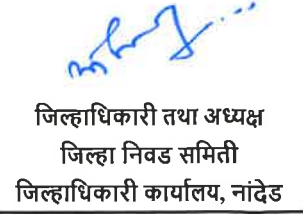 जिल्हाधिकारी तथा अध्यक्ष
जिल्हा निवड समिती
जिल्हाधिकारी कार्यालय, नांदेड